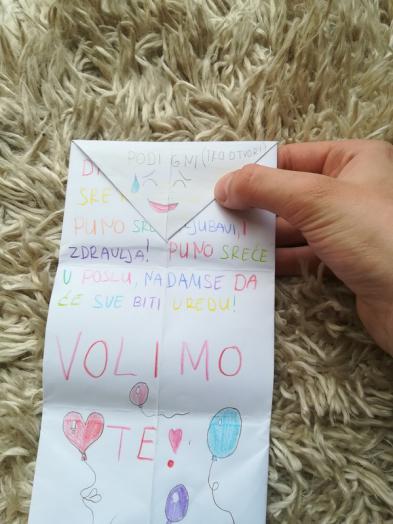 PODIGNI
PUNO LJUBAVI, I
ZDRAVLJA! PUNO SREĆE
U POSLU, NADAMSE DA
ĆE SVE BITI UREDU!
VOLIMO
TE!